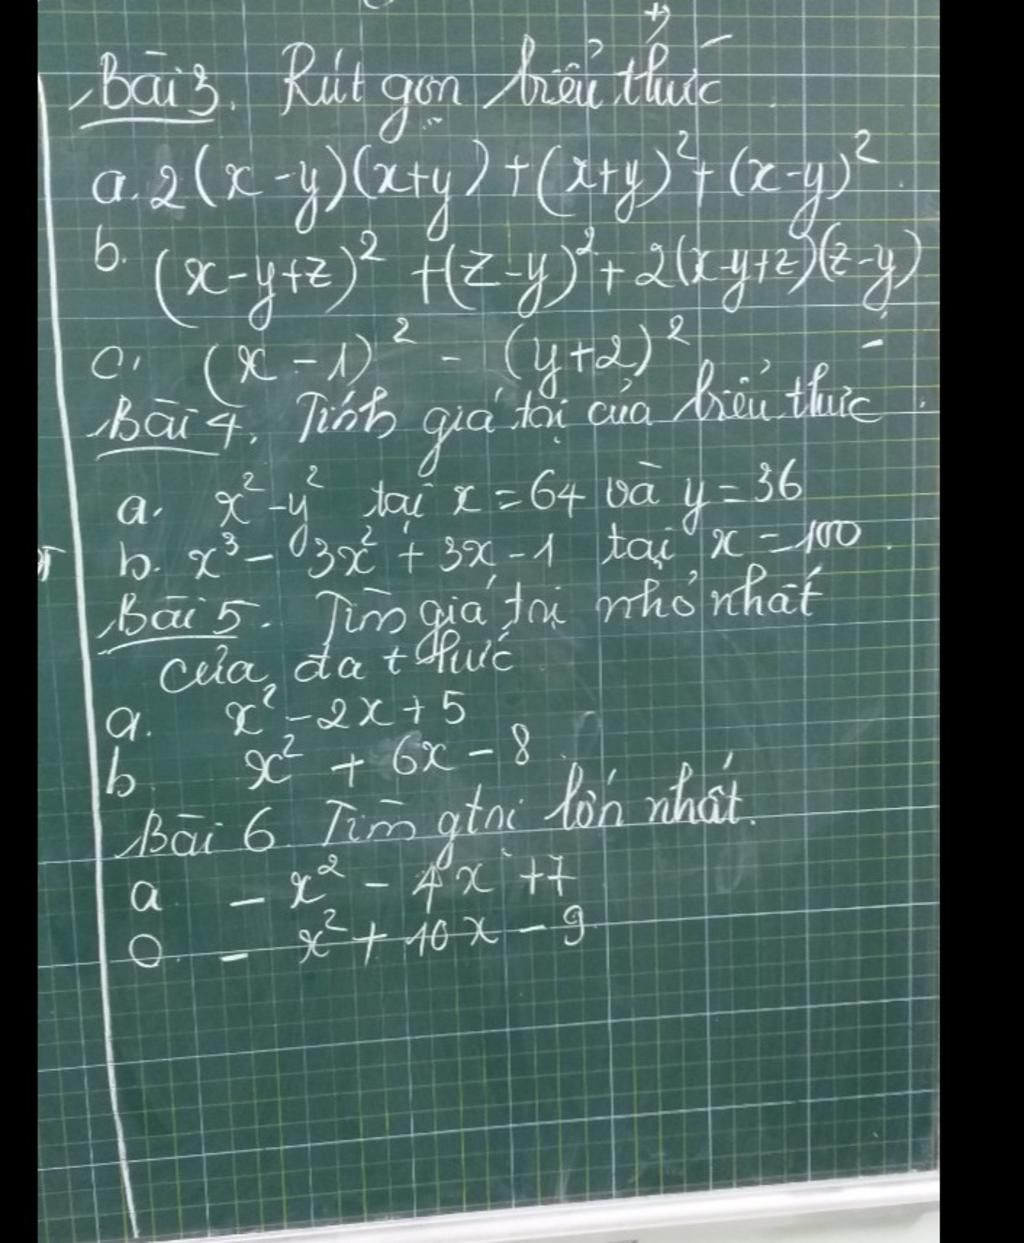 Bài 3. Rút gọn biểu thức
a. 2(x-y)(x+y)+(x+y)²+(x-y)²
b. (x-y+z)²+(z-y)²+2(x-y+z)(z-y)
c. (x-1)² - (y+2)²
Bài 4. Tính giá trị của biểu thức.
a. x²-y² tại x=64 và y=36
b. x³-3x²+3x-1 tại x=100
Bài 5. Tìm giá trị nhỏ nhất
của đa thức
a. x²-2x+5
b. x²+6x-8
Bài 6. Tìm gtrị lớn nhất.
a -x²-4x+7
-x²+10x-9